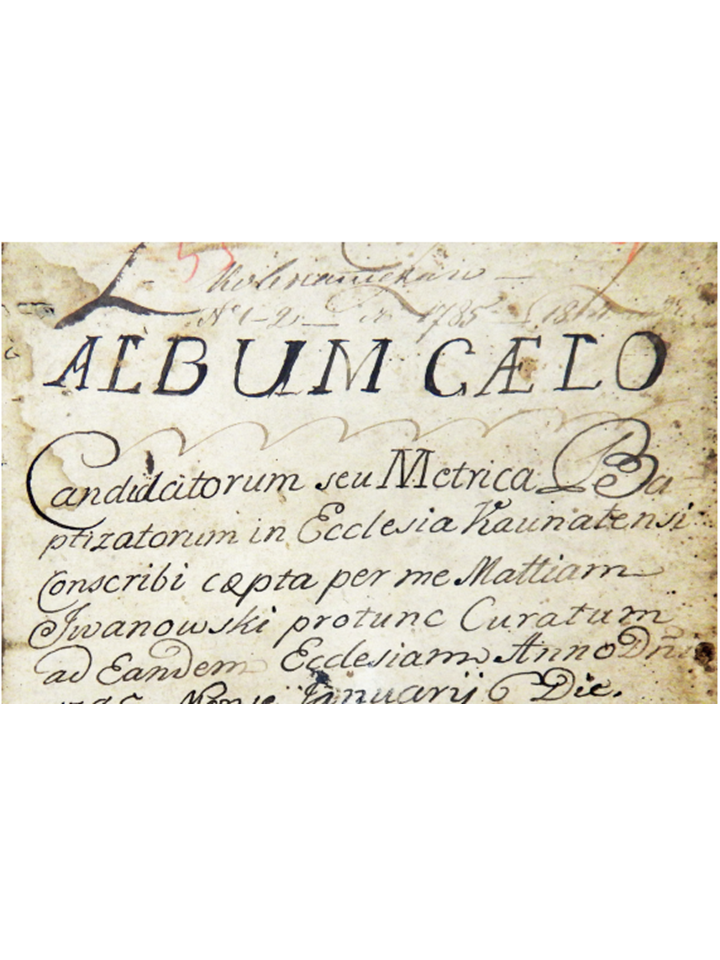 1785
ALBUM CÆLO
Candidatorum seu Metrica Ba-
ptizatorum in Ecclesia Kaunatensi
Conscribi cæpta per me Mattiam
Iwanowski protunc Curatum
ad Eandem Ecclesiam Anno Dñi
Januarij 6 Die.